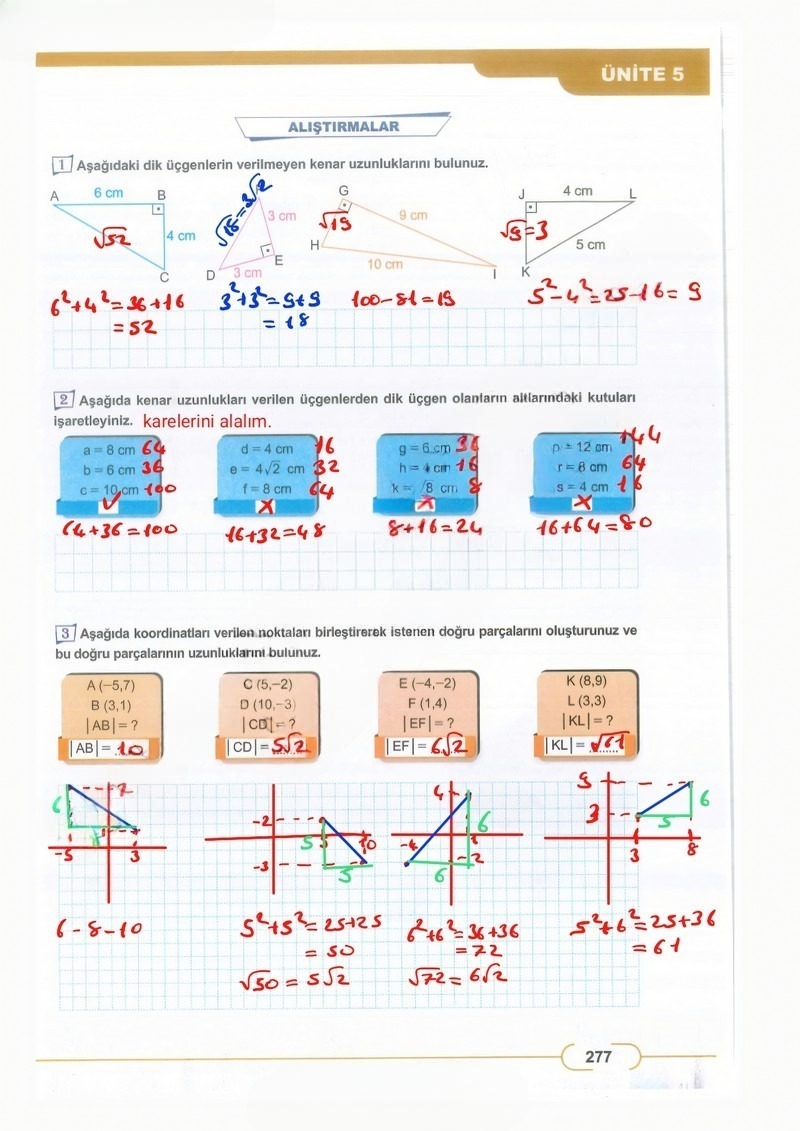 ÜNİTE 5
ALIŞTIRMALAR
1 Aşağıdaki dik üçgenlerin verilmeyen kenar uzunluklarını bulunuz.
A 6 cm B
4 cm
√52
C
√18 = 3√2
3 cm
D 3 cm E
G
√19 9 cm
H
10 cm I
J 4 cm L
√9=3
5 cm
K
6²+4²=36+16
=52
3²+3²=9+9
=18
100-81=19
5²-4²=25-16=9
2 Aşağıda kenar uzunlukları verilen üçgenlerden dik üçgen olanların altlarındaki kutuları
işaretleyiniz. karelerini alalım.
a = 8 cm 64
b = 6 cm 36
c = 10 cm 100
✓
64+36=100
d = 4 cm 16
e = 4√2 cm 32
f = 8 cm 64
x
16+32=48
g = 6 cm 36
h = 4 cm 16
k = √8 cm 8
x
8+16=24
p = 12 cm 144
r = 8 cm 64
s = 4 cm 16
x
16+64=80
3 Aşağıda koordinatları verilen noktaları birleştirerek istenen doğru parçalarını oluşturunuz ve
bu doğru parçalarının uzunluklarını bulunuz.
A (−5,7)
B (3,1)
|AB| = ?
|AB| = 10
C (5,−2)
D (10,−3)
|CD| = ?
|CD| = 5√2
E (−4,−2)
F (1,4)
|EF| = ?
|EF| = 6√2
K (8,9)
L (3,3)
|KL| = ?
|KL| = √61
6
7
-5 3
-2
5 10
-3
5
5
4
-4 1
6
-2
6
9
3
6
5
3 8
6-8-10
5²+5²=25+25
=50
√50=5√2
6²+6²=36+36
=72
√72=6√2
5²+6²=25+36
=61
277